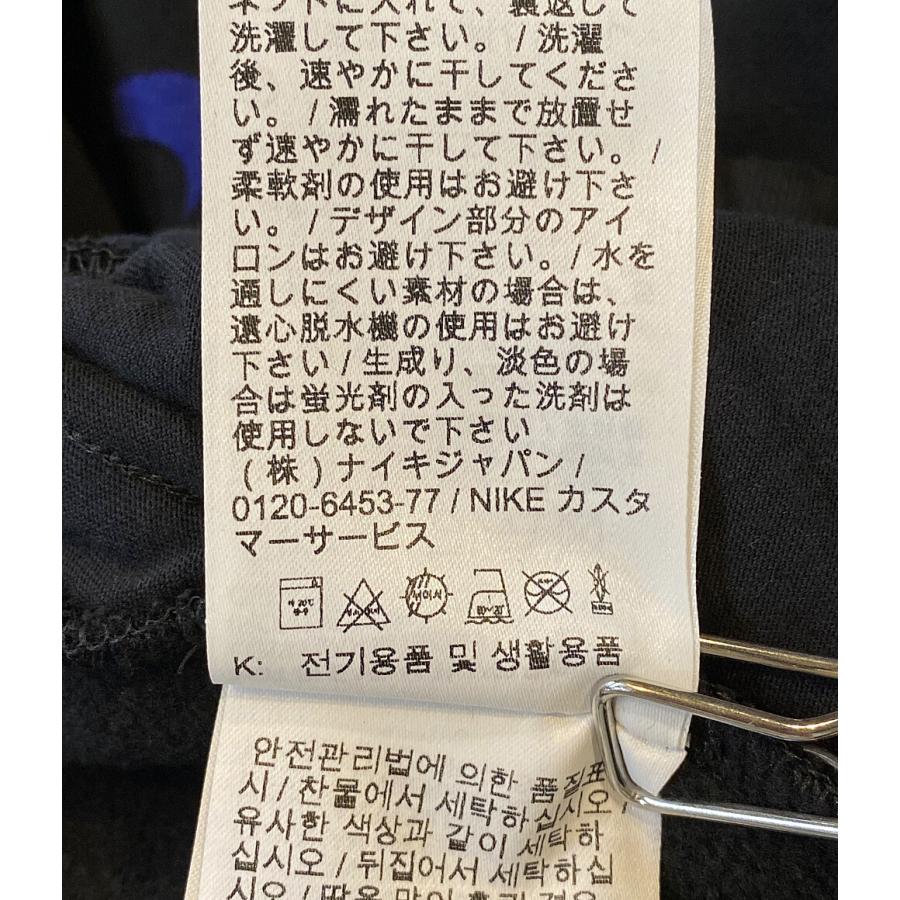 ネットに入れて、裏返して
洗濯して下さい。 / 洗濯
後、速やかに干してくださ
い。 / 濡れたままで放置せ
ず速やかに干して下さい。 /
柔軟剤の使用はお避け下さ
い。 / デザイン部分のアイ
ロンはお避け下さい。/ 水を
通しにくい素材の場合は、
遠心脱水機の使用はお避け
下さい / 生成り、淡色の場
合は蛍光剤の入った洗剤は
使用しないで下さい
(株) ナイキジャパン /
0120-6453-77 / NIKE カスタ
マーサービス
K: 전기용품 및 생활용품
안전관리법에 의한 품질표
시 / 찬물에서 세탁하십시오 /
유사한 색상과 같이 세탁하
십시오 / 뒤집어서 세탁하십
시오 /